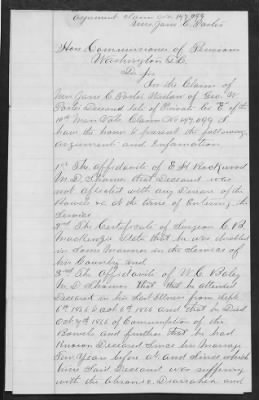 Argument Claim No 147,099
Mrs Jane C. Foster
Hon Commissioner of Pensions
Washington D.C.
Dr Sir
In the Claim of
Mrs Jane C. Foster Widow of Geo. W
Foster Deceased late of Private Co "E" of the
10th Mass Vols Claim No 147,099 I
have the honor to present the following
argument and information
1st The affidavits of E H Rockwood
M. D. Shows that Deceased was
not afflicted with any Disease of the
Bowels &c at the time of Entering the
Service
2nd The Certificate of Surgeon C. B.
Mackenzie states that he was disabled
in some manner in the Service of
his Country and
3rd The Affidavits of W. C. Bailey
M. D. Shows that he attended
Deceased in his last Illness from Sept
6th 1866 to Oct 6th 1866 and that he Died
Oct 7th 1866 of Consumption of the
Bowels and further that he had
Known Deceased since his Marriage
Few Years before at and since which
time said Deceased was suffering
with the Chronic Diarrhoea and